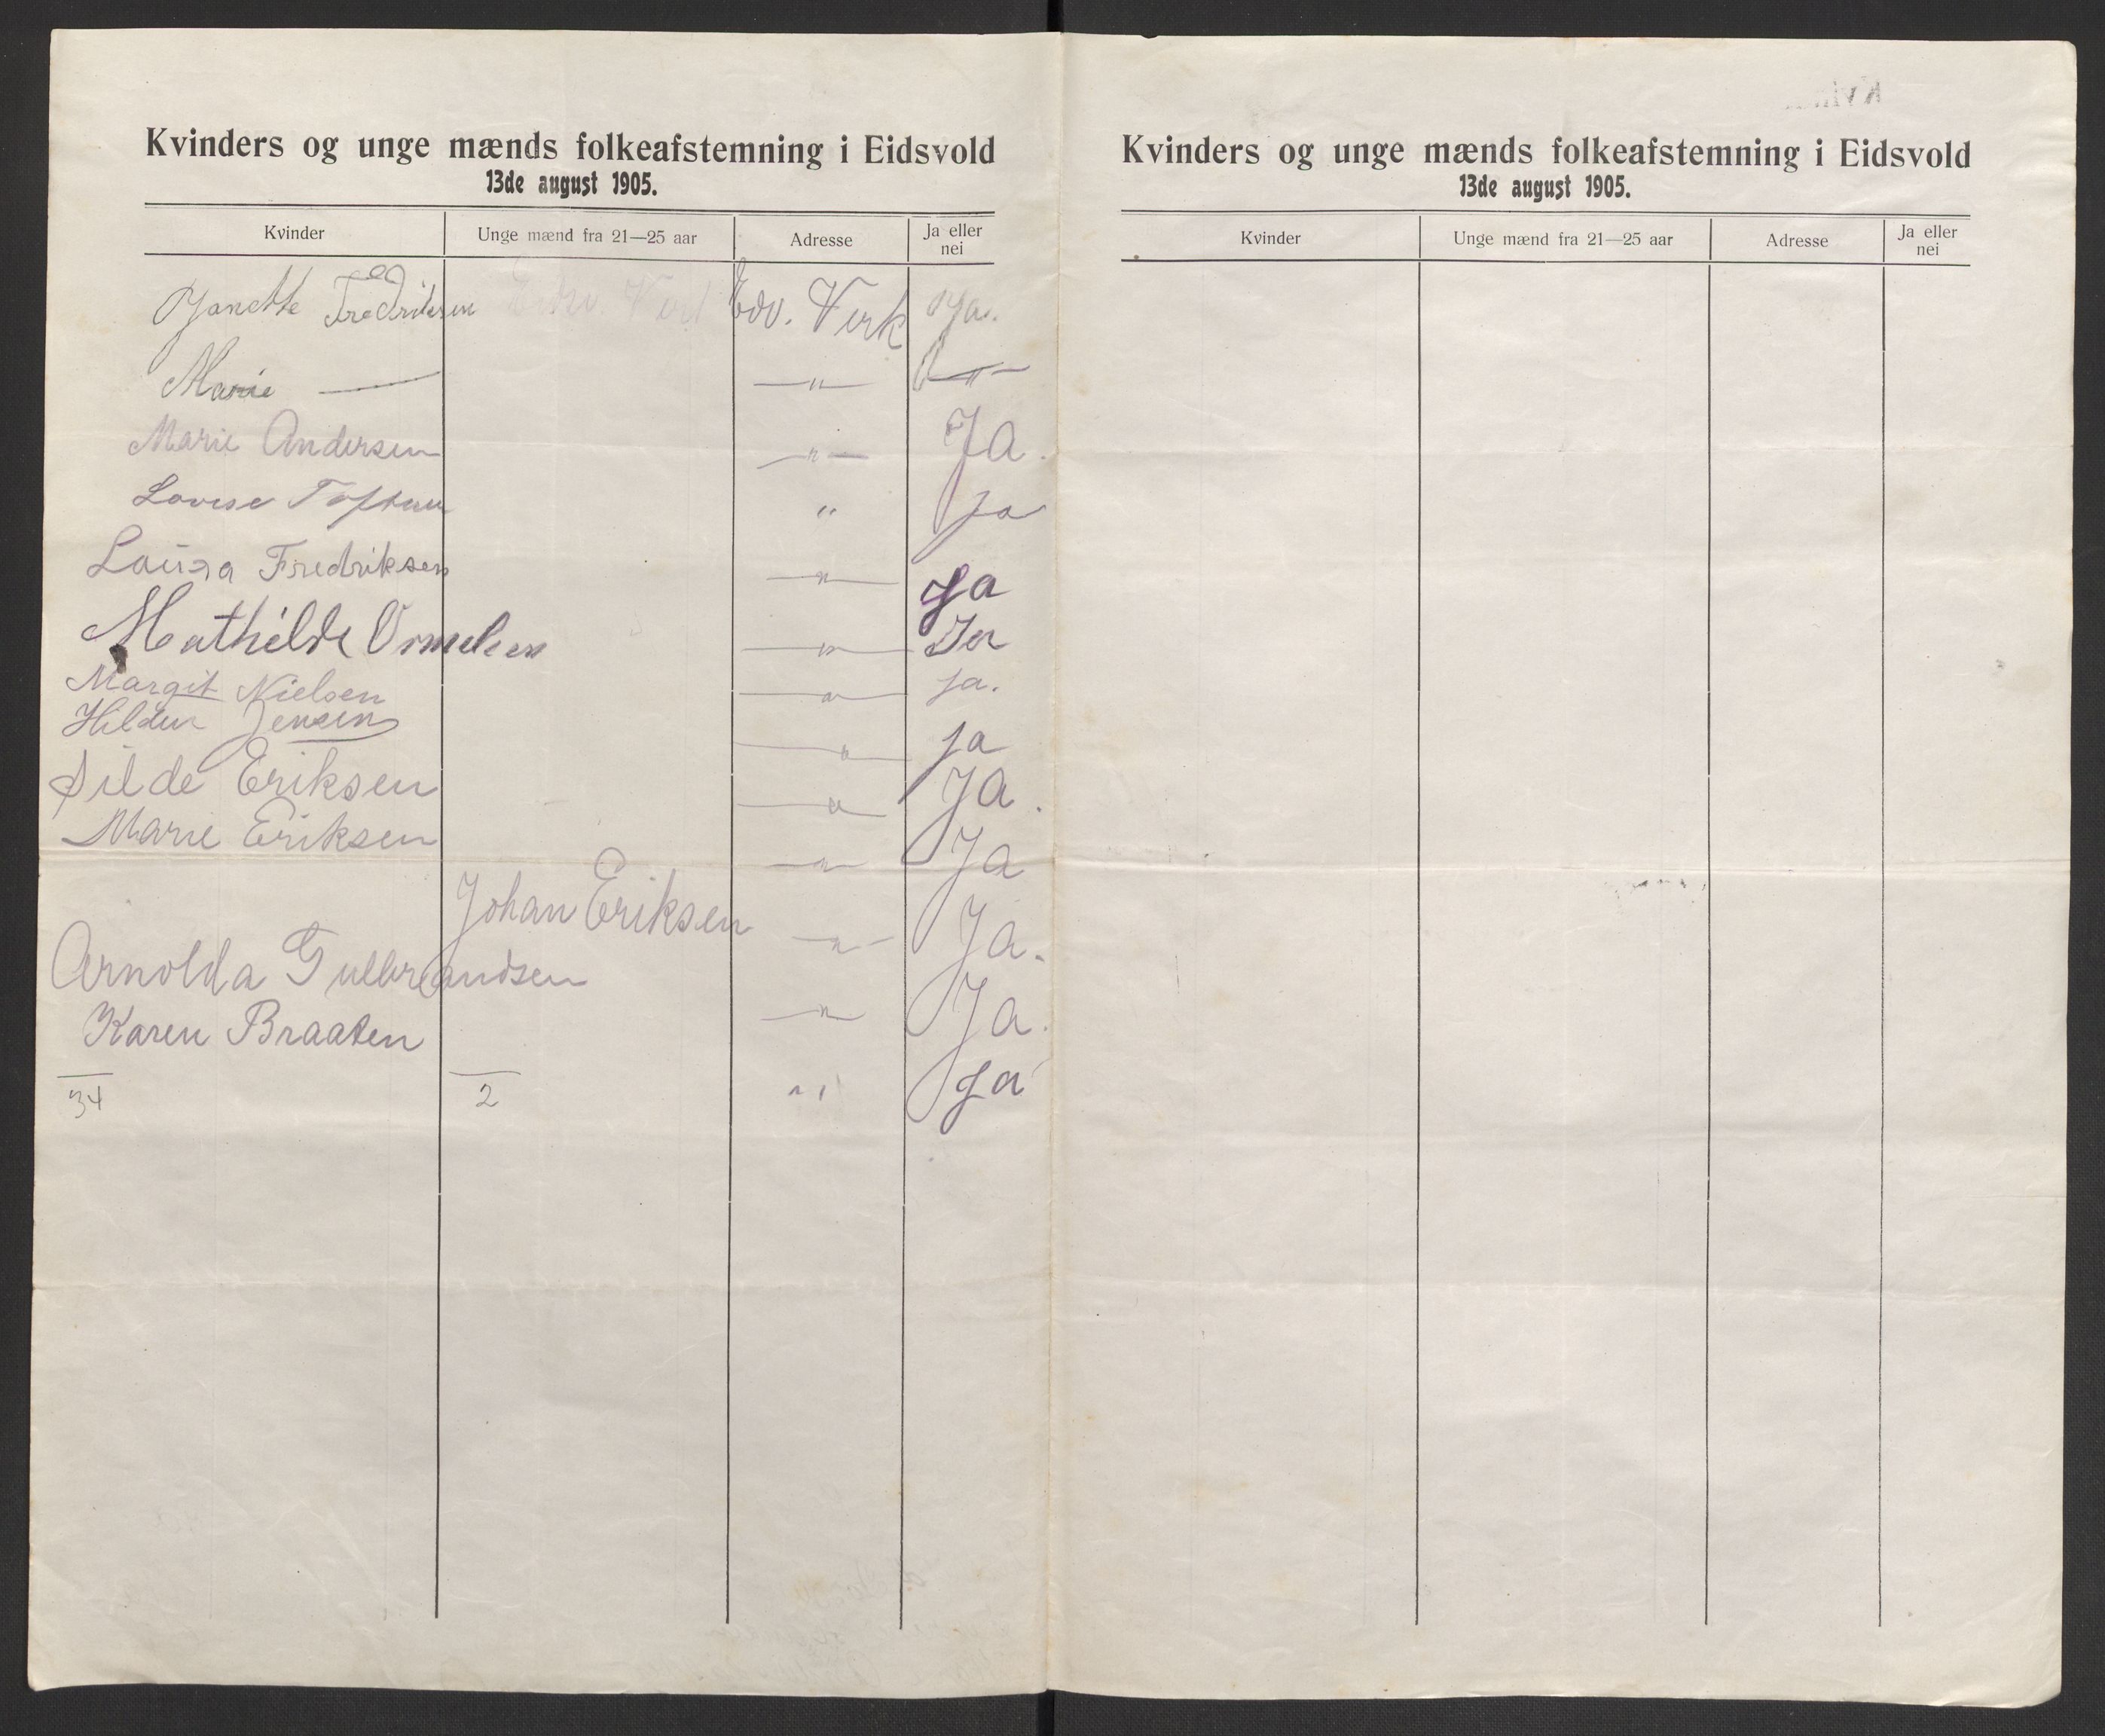 Kvinders og unge mænds folkeafstemning i Eidsvold
13de august 1905.
Kvinder Unge mænd fra 21—25 aar Adresse Ja eller nei
Janette Fredriksen Edv. Verk Ja.
Marie — — " — — " —
Marie Andersen — " — Ja.
Lovise " Ja
Laura Fredriksen — " — Ja
Mathilde — " — Ja
Margit Nielsen — " — ja.
Hildur Jensen — " — ja
Hilde Eriksen — " — Ja.
Marie Eriksen — " — Ja
Johan Eriksen — " — Ja.
Arnolda Gulbrandsen — " — Ja.
Karen Braaten " Ja
34 2
Kvinders og unge mænds folkeafstemning i Eidsvold
13de august 1905.
Kvinder Unge mænd fra 21—25 aar Adresse Ja eller nei